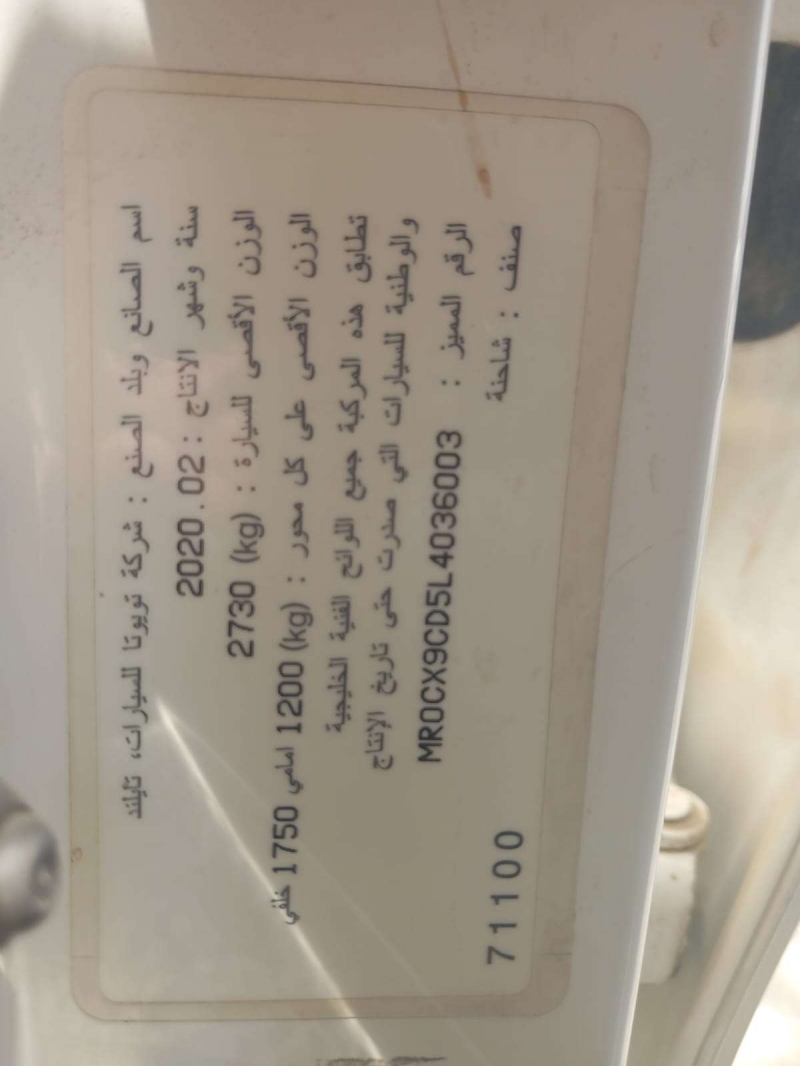 اسم الصانع وبلد الصنع : شركة تويوتا للسيارات، تايلند
سنة وشهر الانتاج : 2020.02
الوزن الأقصى للسيارة : (kg) 2730
الوزن الأقصى على كل محور : (kg) 1200 امامي 1750 خلفي
تطابق هذه المركبة جميع اللوائح الفنية الخليجية
والوطنية للسيارات التي صدرت حتى تاريخ الإنتاج
الرقم المميز : MR0CX9CD5L4036003
صنف : شاحنة
71100